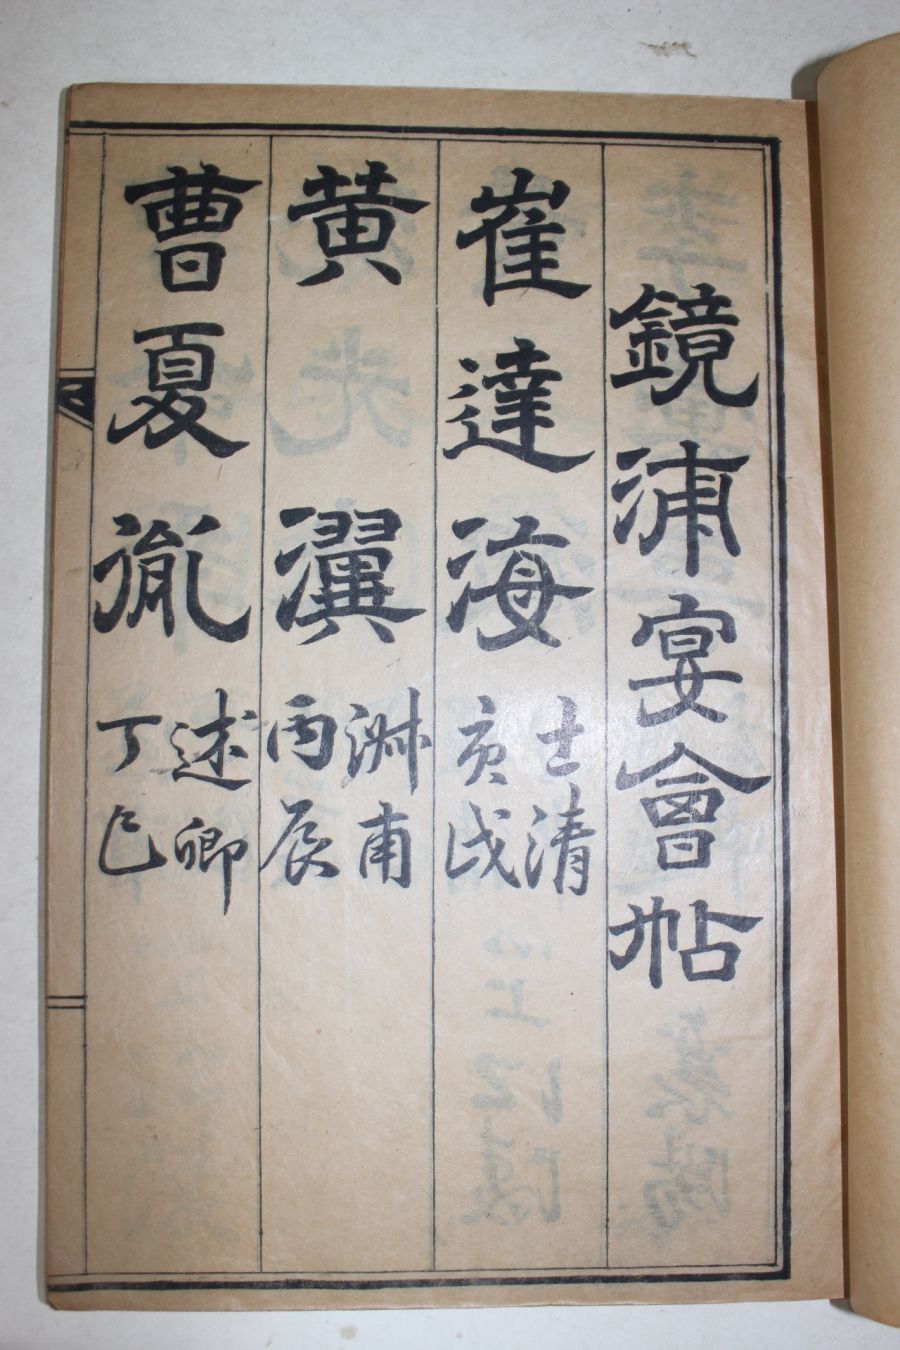 鏡浦宴會帖
崔達海 士清 庚戌
黃瀷 甫 丙辰
曹夏胤 述卿 丁巳